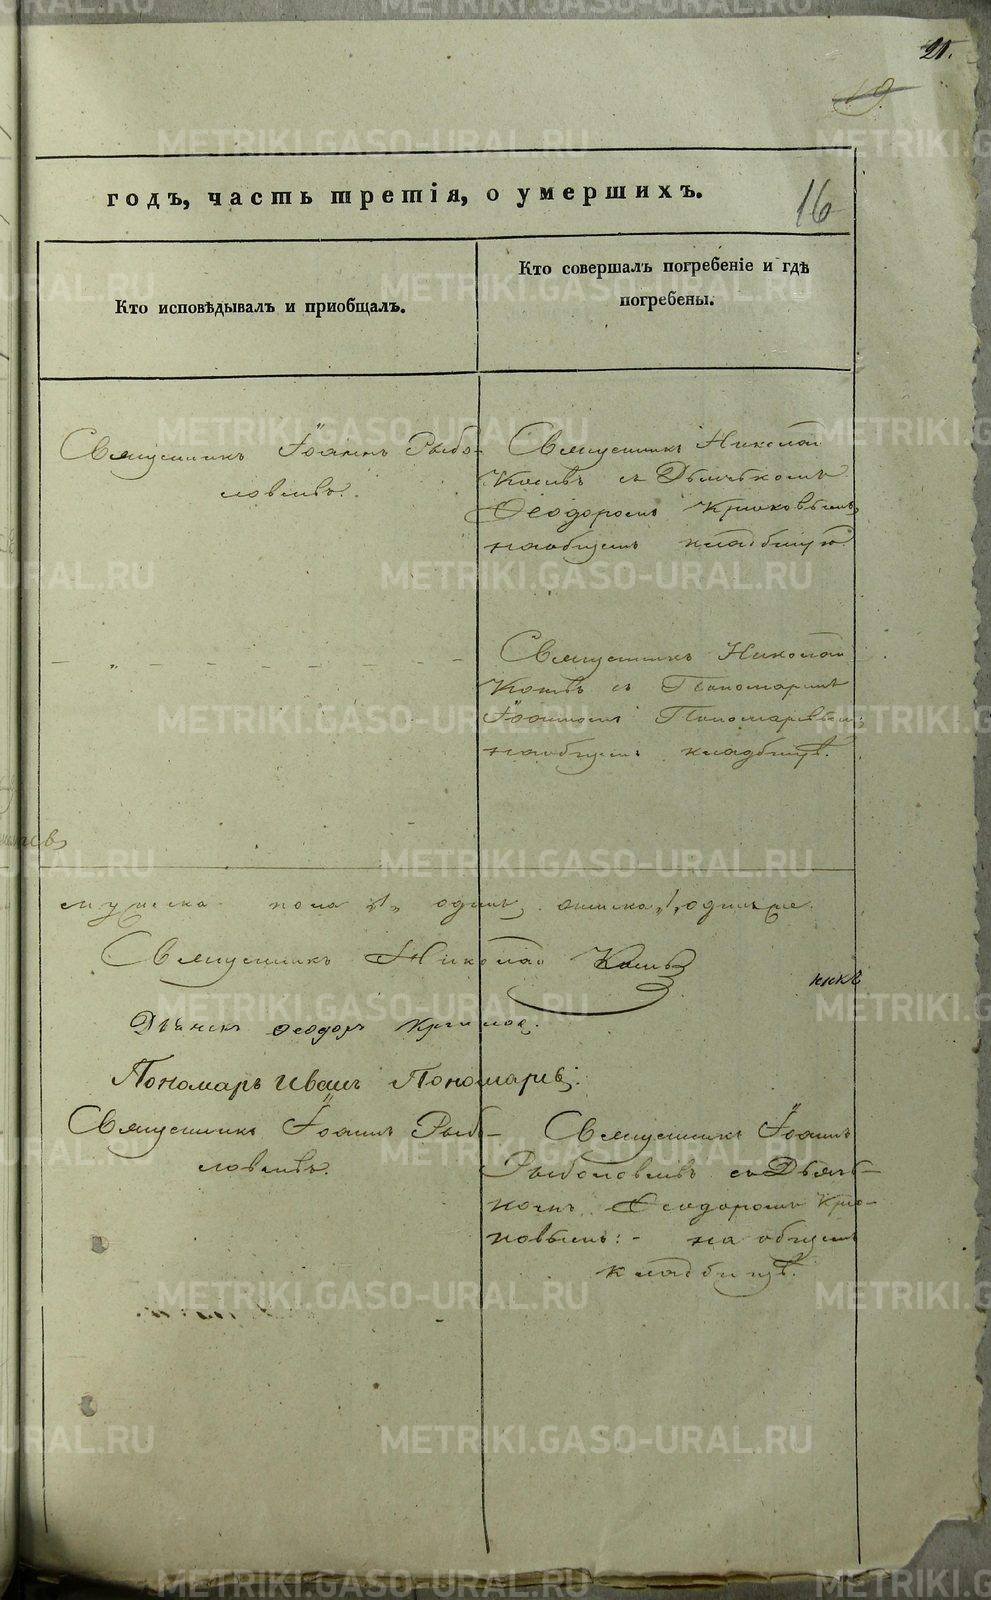 21.
19
годъ, часть третія, о умершихъ.
16
Кто исповѣдывалъ и приобщалъ.
Кто совершалъ погребеніе и гдѣ
погребены.
Священникъ Іоаннъ Рыбо-
ловлевъ.
Священникъ Николай
съ Дьячкомъ
Ѳеодоромъ Крюковымъ
на общемъ кладбищѣ
Священникъ Николай
съ Пономаремъ
Іоанномъ Пономаревымъ
на общемъ кладбищѣ.
мужеска пола 1, одинъ, женска 1, одна же.
Священникъ Николай
Дьячекъ Ѳеодоръ Крюковъ.
Пономарь Иванъ Пономаревъ.
Священникъ Іоаннъ Рыбо-
ловлевъ.
Священникъ Іоаннъ
Рыболовлевъ съ Дьяч-
комъ Ѳеодоромъ Крю-
ковымъ:- на общемъ
кладбищѣ.
METRIKI.GASO-URAL.RU